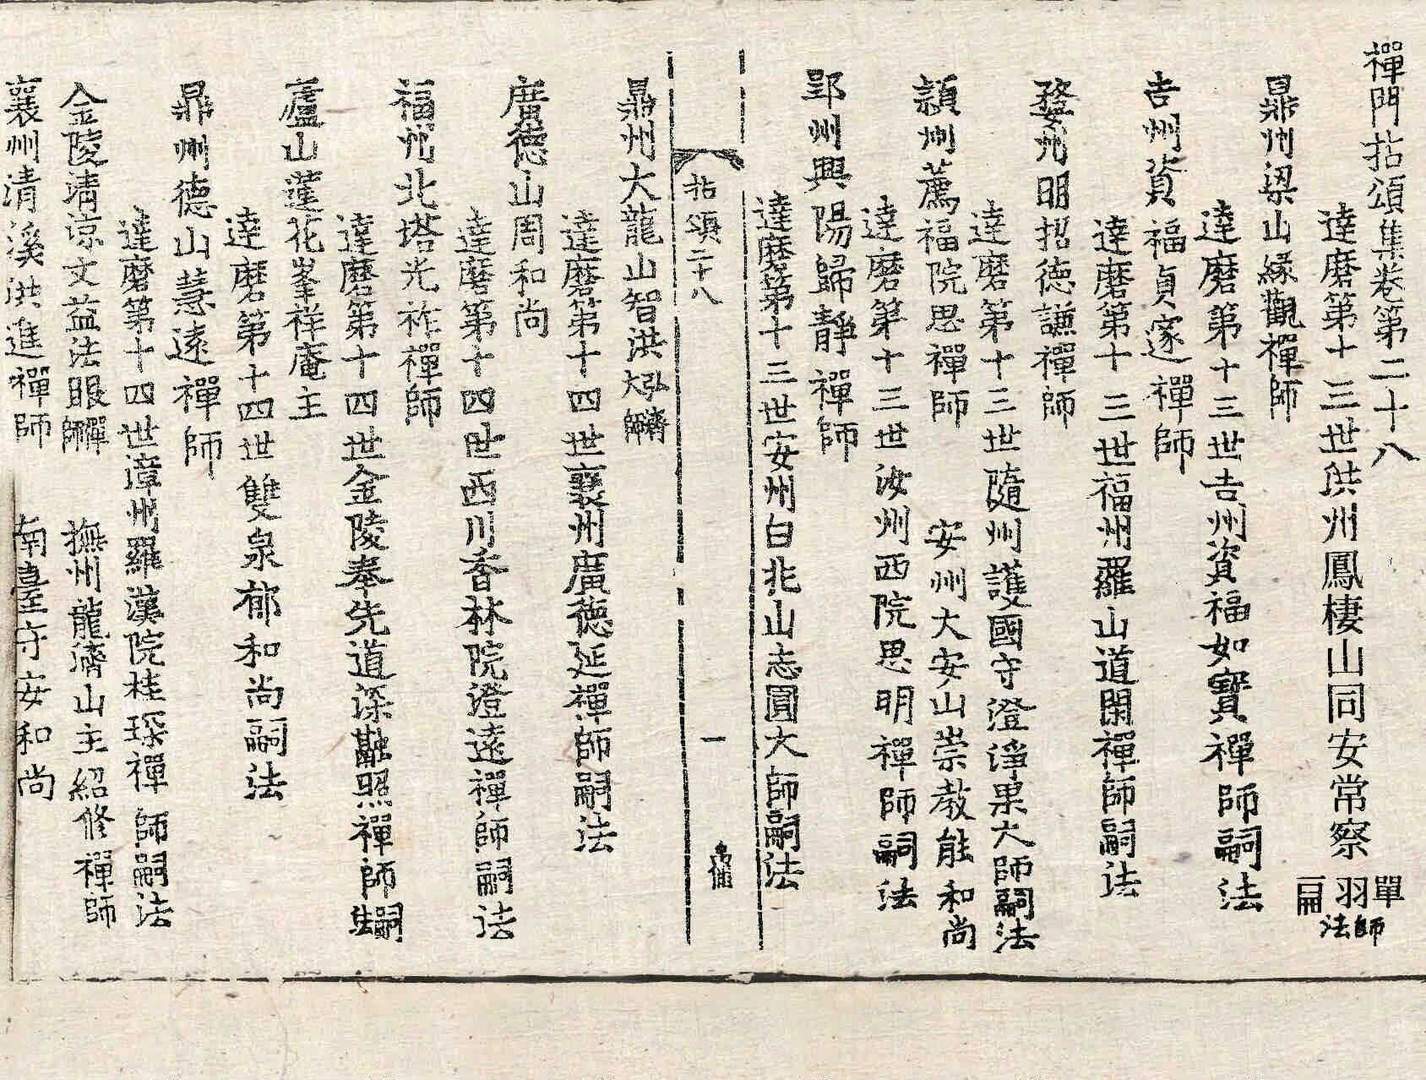 禪門拈頌集卷第二十八
達磨第十三世洪州鳳棲山同安常察禪師嗣法
鼎州梁山緣觀禪師
達磨第十三世吉州資福如寶禪師嗣法
吉州資福貞邃禪師
達磨第十三世福州羅山道閑禪師嗣法
婺州明招德謙禪師
達磨第十三世隨州護國守澄淨果大師嗣法
穎州薦福院思禪師 安州大安山崇教能和尚
達磨第十三世汝州西院思明禪師嗣法
郢州興陽歸靜禪師
達磨第十三世安州白兆山志圓大師嗣法
拈頌二十八 一
鼎州大龍山智洪弘濟大師
達磨第十四世襄州廣德延禪師嗣法
廣德山周和尚
達磨第十四世西川香林院澄遠禪師嗣法
福州北塔光祚禪師
達磨第十四世金陵奉先道深融照禪師嗣法
廬山蓮花峯祥庵主
達磨第十四世雙泉郁和尚嗣法
鼎州德山慧遠禪師
達磨第十四世漳州羅漢院桂琛禪師嗣法
金陵清涼文益法眼禪師 撫州龍濟山主紹修禪師
襄州清溪洪進禪師 南臺守安和尚